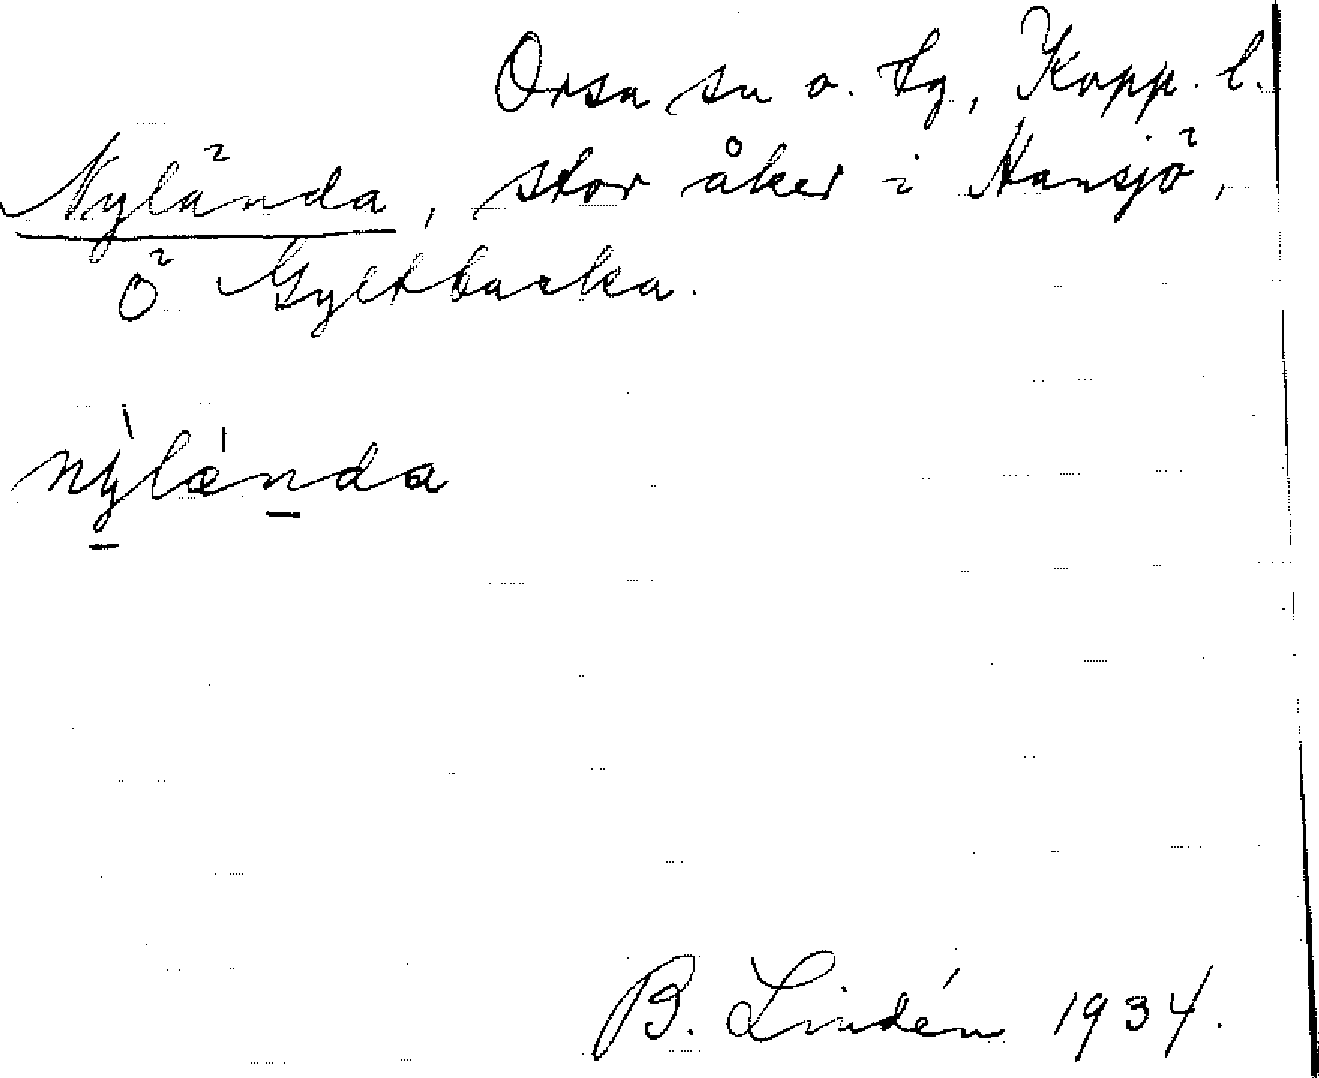 Orsa sn o. tg, Kopp. l.
Nylända, stor åker i Hansjö,
Ö Gyltbacka.
nỳlǽnda
B. Lindén 1934.